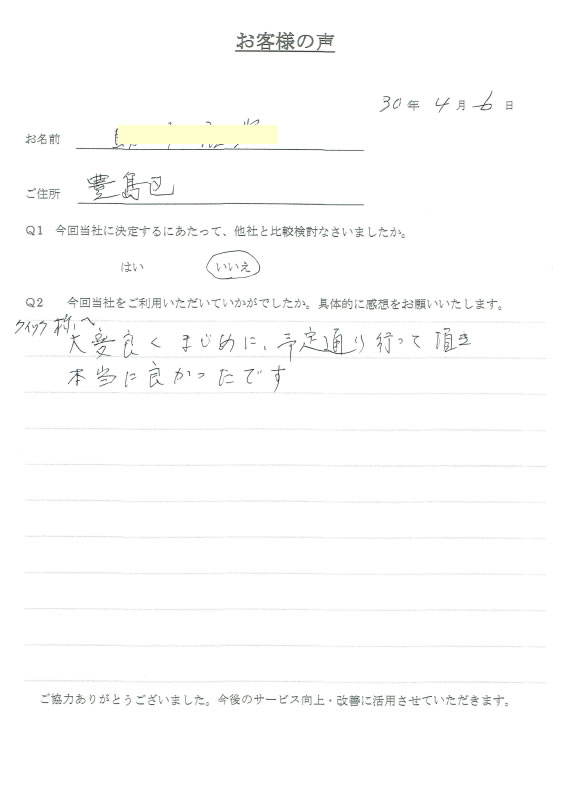 お客様の声
30年 4月 6日
お名前
ご住所 豊島区
Q1 今回当社に決定するにあたって、他社と比較検討なさいましたか。
はい いいえ
Q2 今回当社をご利用いただいていかがでしたか。具体的に感想をお願いいたします。
クイック様へ
大変良くまじめに、予定通り行って頂き
本当に良かったです
ご協力ありがとうございました。今後のサービス向上・改善に活用させていただきます。